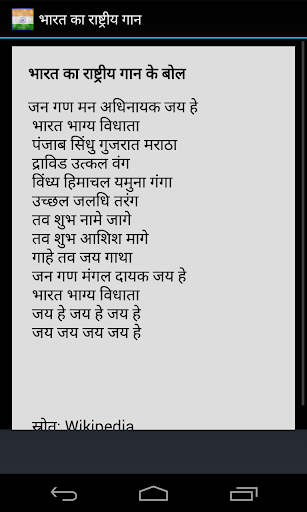 भारत का राष्ट्रीय गान
भारत का राष्ट्रीय गान के बोल
जन गण मन अधिनायक जय हे
भारत भाग्य विधाता
पंजाब सिंधु गुजरात मराठा
द्राविड उत्कल वंग
विंध्य हिमाचल यमुना गंगा
उच्छल जलधि तरंग
तव शुभ नामे जागे
तव शुभ आशिश मागे
गाहे तव जय गाथा
जन गण मंगल दायक जय हे
भारत भाग्य विधाता
जय हे जय हे जय हे
जय जय जय जय हे
स्रोत: Wikipedia